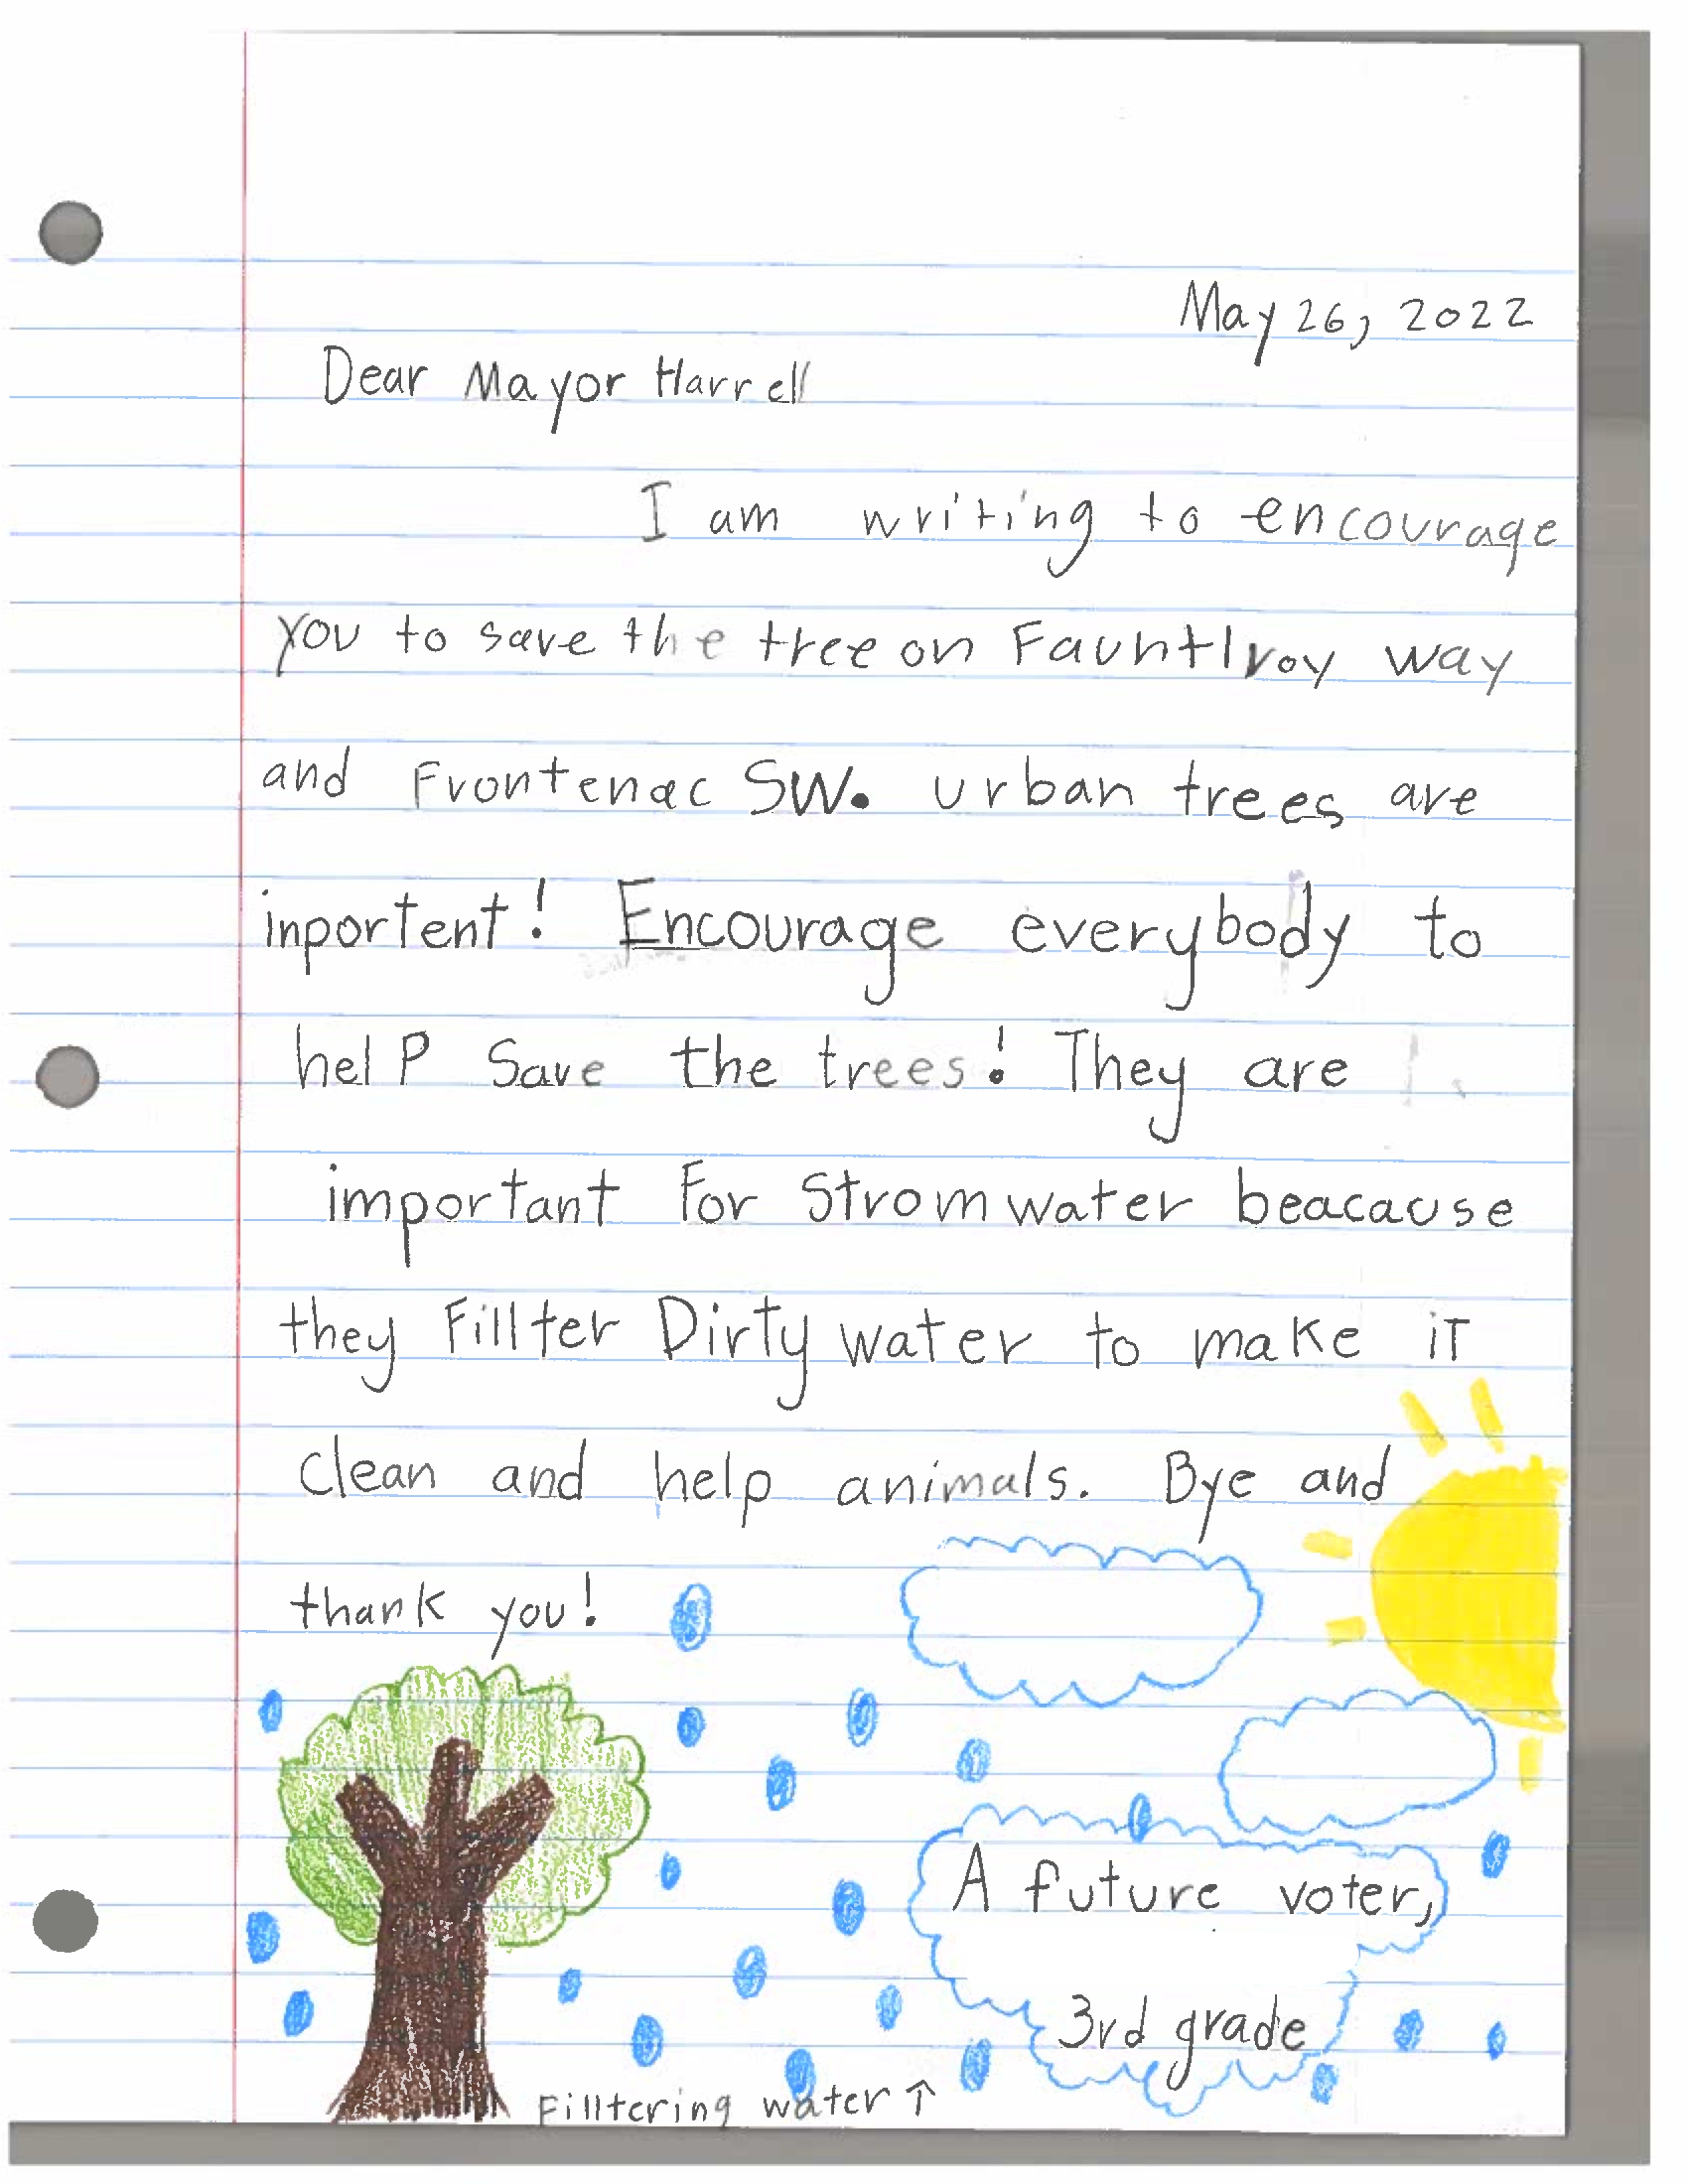 May 26, 2022
Dear Mayor Harrell
I am writing to encourage
you to save the tree on Fauntlroy way
and Frontenac SW. urban trees are
inportent! Encourage everybody to
help Save the trees! They are
important For Stromwater beacause
they Fillter Dirty water to make it
clean and help animals. Bye and
thank you!
A future voter,
3rd grade
Filltering water ↑